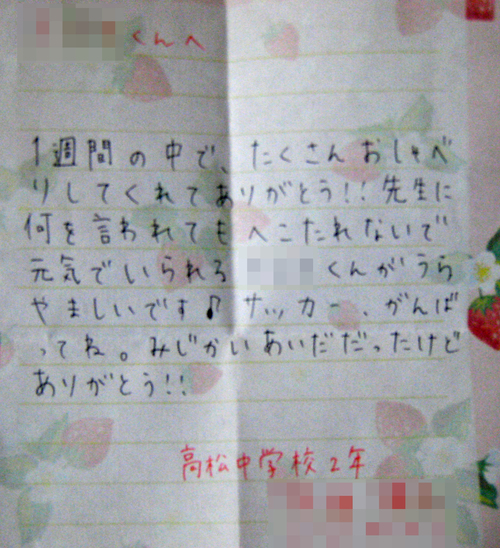 くんへ
1週間の中で、たくさんおしゃべ
りしてくれてありがとう!!先生に
何を言われてもへこたれないで
元気でいられる くんがうら
やましいです♪サッカー、がんば
ってね。みじかいあいだだったけど
ありがとう!!
高松中学校2年